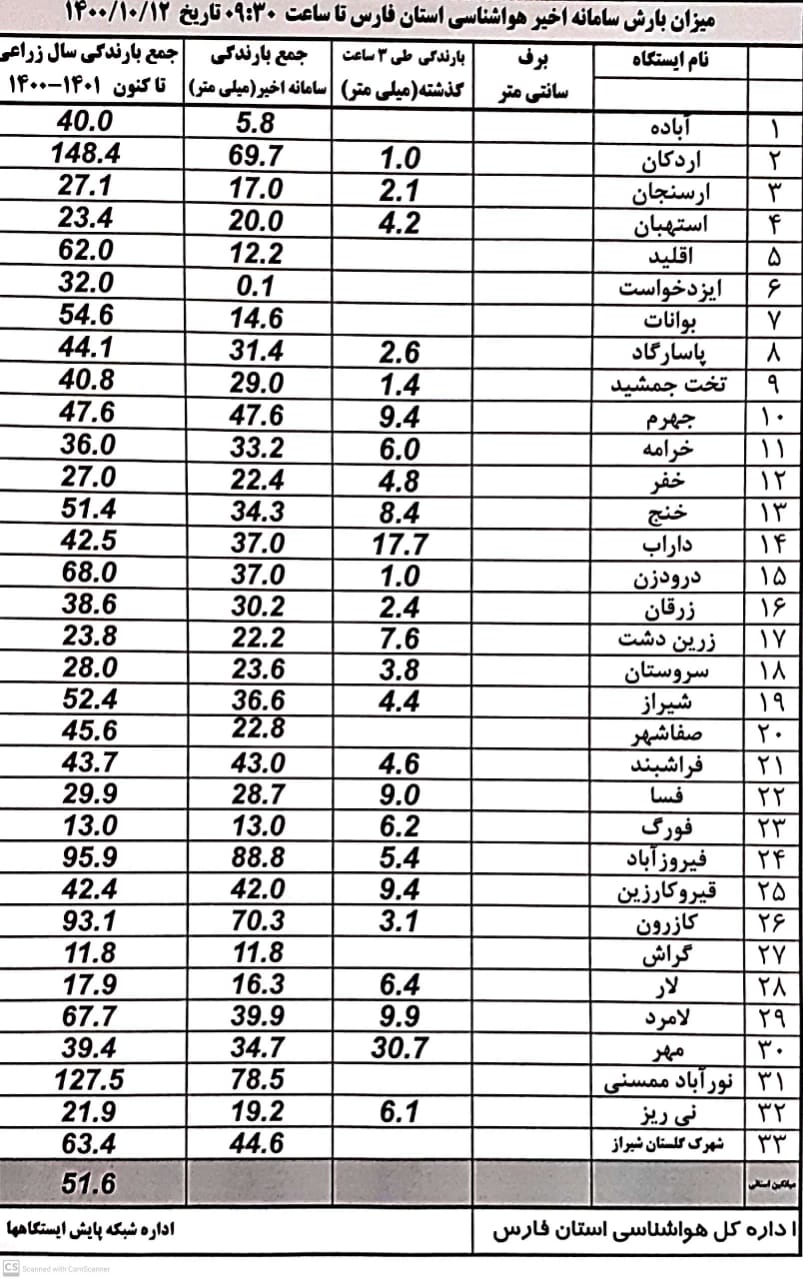 میزان بارش سامانه اخیر هواشناسی استان فارس تا ساعت ۰۹:۳۰ تاریخ ۱۴۰۰/۱۰/۱۲
نام ایستگاه برف سانتی متر بارندگی طی ۳ ساعت گذشته(میلی متر) جمع بارندگی سامانه اخیر(میلی متر) جمع بارندگی سال زراعی تا کنون ۱۴۰۱-۱۴۰۰
۱ آباده 5.8 40.0
۲ اردکان 1.0 69.7 148.4
۳ ارسنجان 2.1 17.0 27.1
۴ استهبان 4.2 20.0 23.4
۵ اقلید 12.2 62.0
۶ ایزدخواست 0.1 32.0
۷ بوانات 14.6 54.6
۸ پاسارگاد 2.6 31.4 44.1
۹ تخت جمشید 1.4 29.0 40.8
۱۰ جهرم 9.4 47.6 47.6
۱۱ خرامه 6.0 33.2 36.0
۱۲ خفر 4.8 22.4 27.0
۱۳ خنج 8.4 34.3 51.4
۱۴ داراب 17.7 37.0 42.5
۱۵ درودزن 1.0 37.0 68.0
۱۶ زرقان 2.4 30.2 38.6
۱۷ زرین دشت 7.6 22.2 23.8
۱۸ سروستان 3.8 23.6 28.0
۱۹ شیراز 4.4 36.6 52.4
۲۰ صفاشهر 22.8 45.6
۲۱ فراشبند 4.6 43.0 43.7
۲۲ فسا 9.0 28.7 29.9
۲۳ فورگ 6.2 13.0 13.0
۲۴ فیروزآباد 5.4 88.8 95.9
۲۵ قیروکارزین 9.4 42.0 42.4
۲۶ کازرون 3.1 70.3 93.1
۲۷ گراش 11.8 11.8
۲۸ لار 6.4 16.3 17.9
۲۹ لامرد 9.9 39.9 67.7
۳۰ مهر 30.7 34.7 39.4
۳۱ نورآباد ممسنی 78.5 127.5
۳۲ نی ریز 6.1 19.2 21.9
۳۳ شهرک گلستان شیراز 44.6 63.4
میانگین استانی 51.6
اداره کل هواشناسی استان فارس اداره شبکه پایش ایستگاهها
CS Scanned with CamScanner